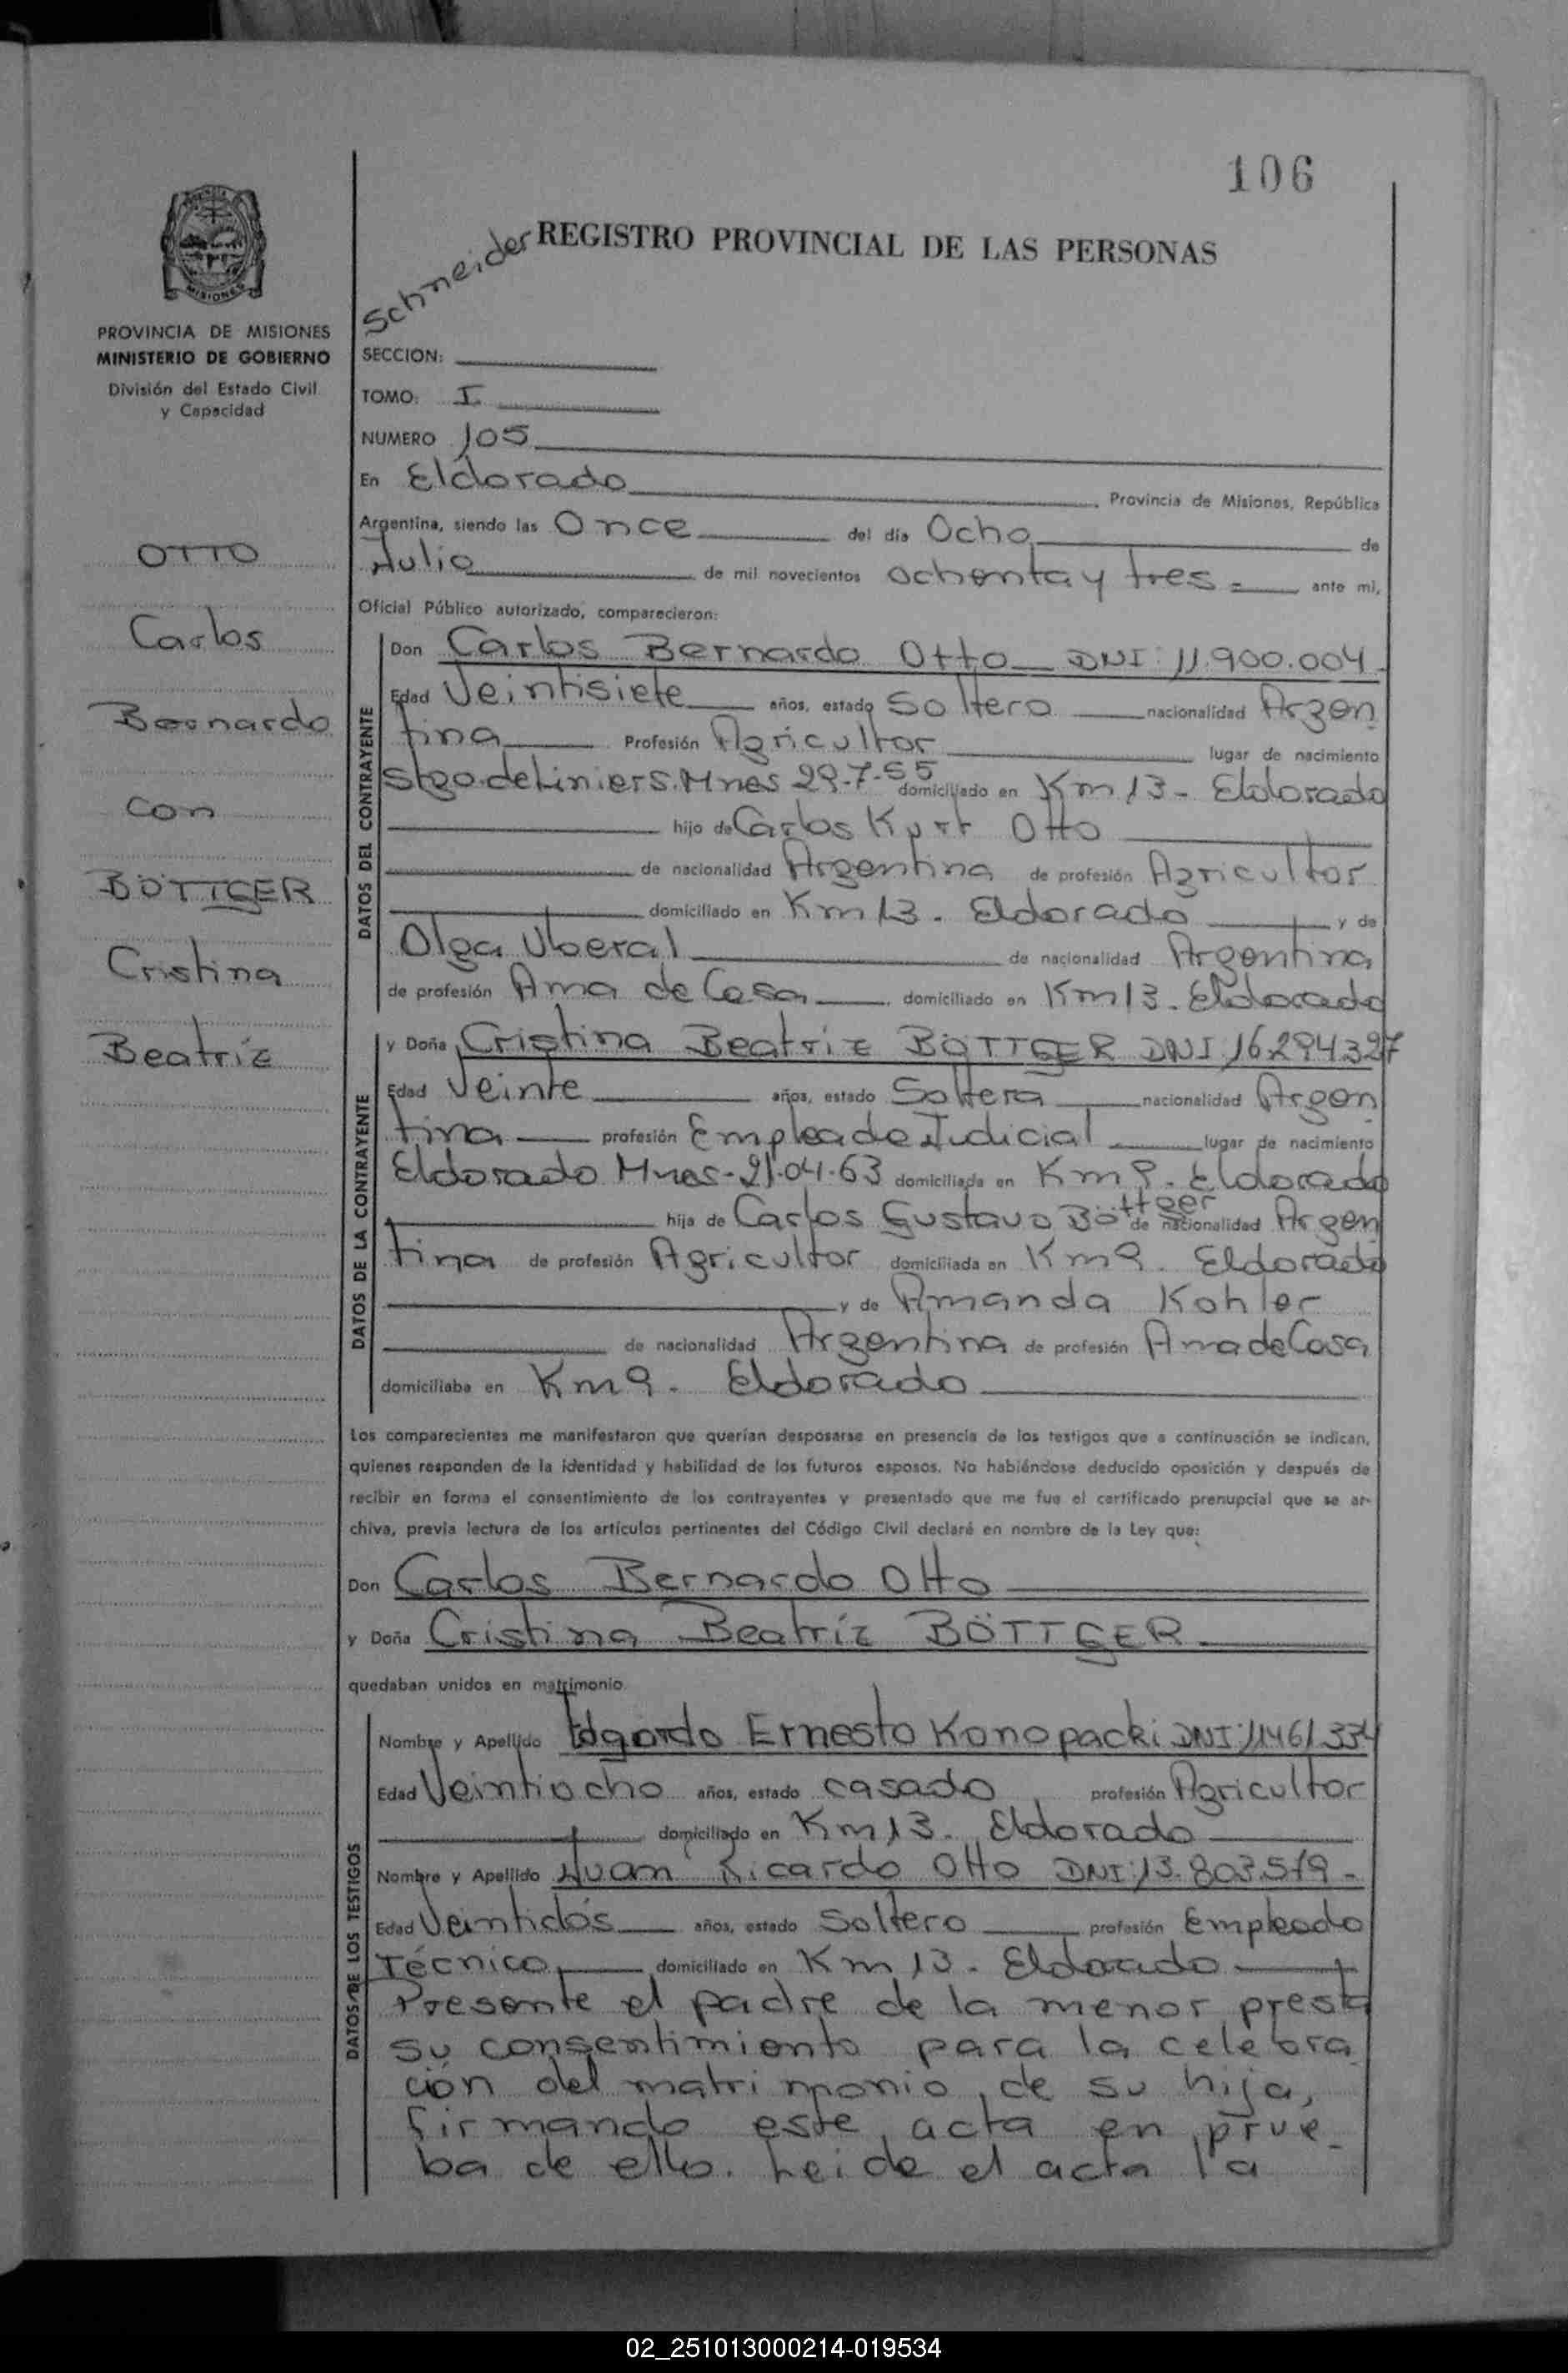 106
REGISTRO PROVINCIAL DE LAS PERSONAS
Schneider
MISIONES
PROVINCIA DE MISIONES
MINISTERIO DE GOBIERNO
División del Estado Civil
y Capacidad
SECCION:
TOMO: I.
NUMERO 105
En Eldorado Provincia de Misiones, República
Argentina, siendo las Once del día Ocho de
Julio de mil novecientos ochenta y tres = ante mi,
Oficial Público autorizado, comparecieron:
OTTO
Carlos
Bernardo
con
BÖTTGER
Cristina
Beatríz
DATOS DEL CONTRAYENTE
Don Carlos Bernardo Otto DNI: 11.900.004.
Edad Veintisiete años, estado Soltero nacionalidad Argen
tina Profesión Agricultor lugar de nacimiento
Stgo. de Liniers. Mnes 29-7-55 domiciliado en Km 13 - Eldorado
hijo de Carlos Kurt Otto
de nacionalidad Argentina de profesión Agricultor
domiciliado en Km 13. Eldorado y de
Olga Uberal de nacionalidad Argentina
de profesión Ama de Casa domiciliado en Km 13. Eldorado
DATOS DE LA CONTRAYENTE
y Doña Cristina Beatriz BÖTTGER DNI 16294327
Edad Veinte años, estado Soltera nacionalidad Argen
tina profesión Empleade Judicial lugar de nacimiento
Eldorado Mnes - 21-04-63 domiciliada en Km 9. Eldorado
hija de Carlos Gustavo Böttger de nacionalidad Argen
tina de profesión Agricultor domiciliada en Km 9. Eldorado
y de Amanda Kohler
de nacionalidad Argentina de profesión Ama de Casa
domiciliaba en Km 9. Eldorado
Los comparecientes me manifestaron que querían desposarse en presencia de los testigos que a continuación se indican,
quienes responden de la identidad y habilidad de los futuros esposos. No habiéndose deducido oposición y después de
recibir en forma el consentimiento de los contrayentes y presentado que me fue el certificado prenupcial que se ar-
chiva, previa lectura de los artículos pertinentes del Código Civil declaré en nombre de la Ley que:
Don Carlos Bernardo Otto
y Doña Cristina Beatríz BÖTTGER
quedaban unidos en matrimonio
DATOS DE LOS TESTIGOS
Nombre y Apellido Edgardo Ernesto Konopacki DNI: 11461334
Edad Veintiocho años, estado casado profesión Agricultor
domiciliado en Km 13. Eldorado
Nombre y Apellido Juan Ricardo Otto DNI: 13.803.519 -
Edad Veintidós años, estado Soltero profesión Empleado
Técnico domiciliado en Km 13 - Eldorado
Presente el padre de la menor presta
su consentimiento para la celebra
ción del matrimonio, de su hija,
firmando este acta en prue-
ba de ello. Leida el acta la
02_251013000214-019534